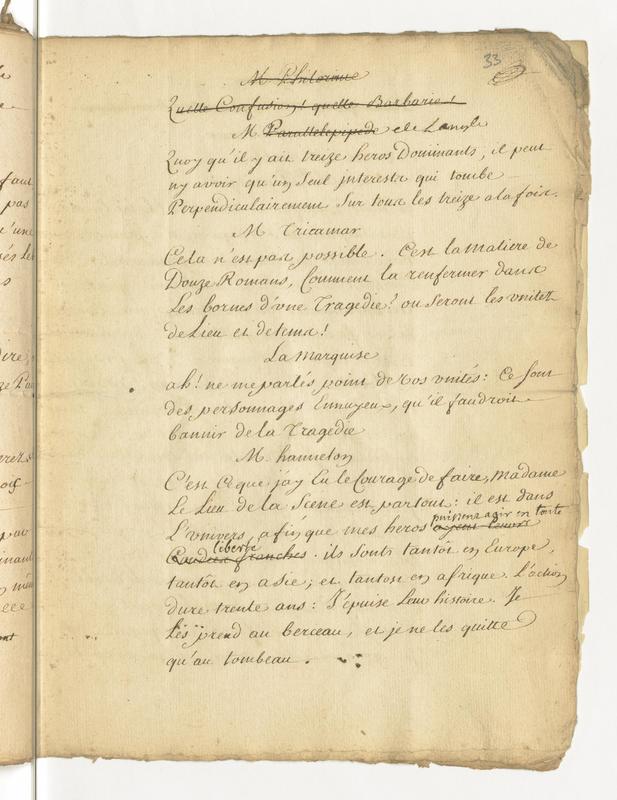 33
M. Philorime
Quelle Confusion! quelle Barbarie!
M. Parallelepipede de Langle
Quoy qu'il y ait treize heros Dominants, il peut
n'y avoir qu'un seul interest qui tombe
Perpendiculairement sur tous les treize a la fois.
M. Tricamar
Cela n'est pas possible. C'est la matiere de
Douze Romans, Comment la renfermer dans
Les bornes d'une Tragedie? ou seront les unitez
de Lieu et de tems!
La Marquise
ah! ne me parlés point de vos unités: Ce sont
des personnages Ennuyeux, qu'il faudroit
bannir de la Tragedie
M. hanneton
C'est Ce que j'ay Eu le Courage de faire, Madame
Le Lieu de la Scene est partout: il est dans
L'univers, afin que mes heros ayent leurs puissent agir en toute
Coudées franches liberté. ils sont tantôt en Europe,
tantôt en asie; et tantost en afrique. L'action
dure trente ans: J'épuise Leur histoire. Je
Les prend au berceau, et je ne les quitte
qu'au tombeau.